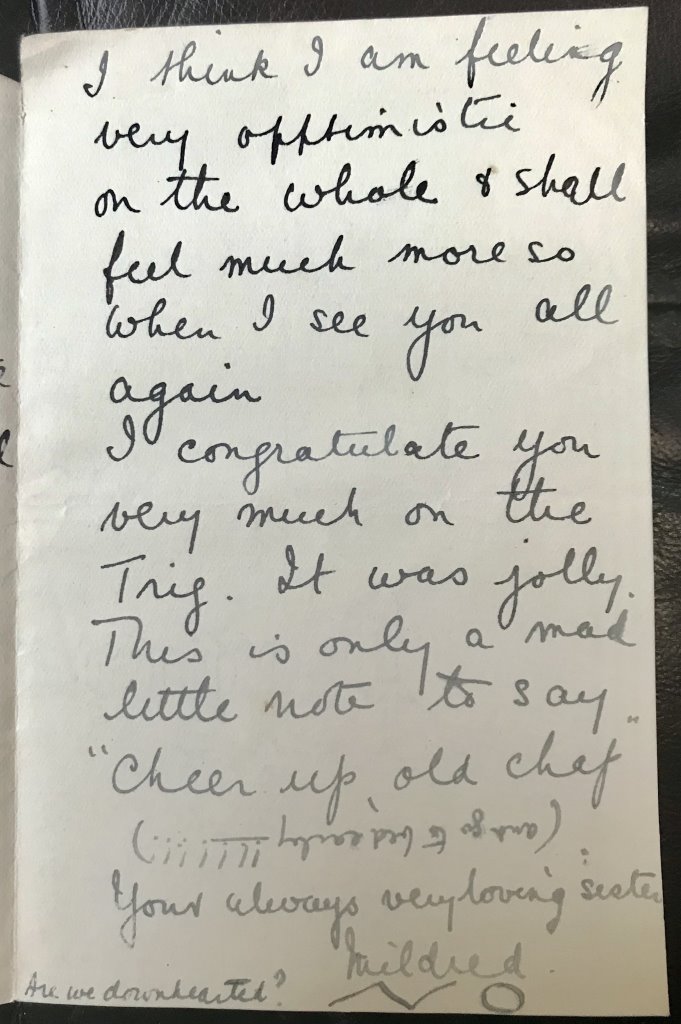 I think I am feeling
very opptimistic
on the whole & shall
feel much more so
when I see you all
again
I congratulate you
very much on the
Trig. It was jolly.
This is only a mad
little note to say
"Cheer up, old chap"
(and go to bed early !!!!!!!)
Your always very loving sister
Mildred.
Are we downhearted?
NO